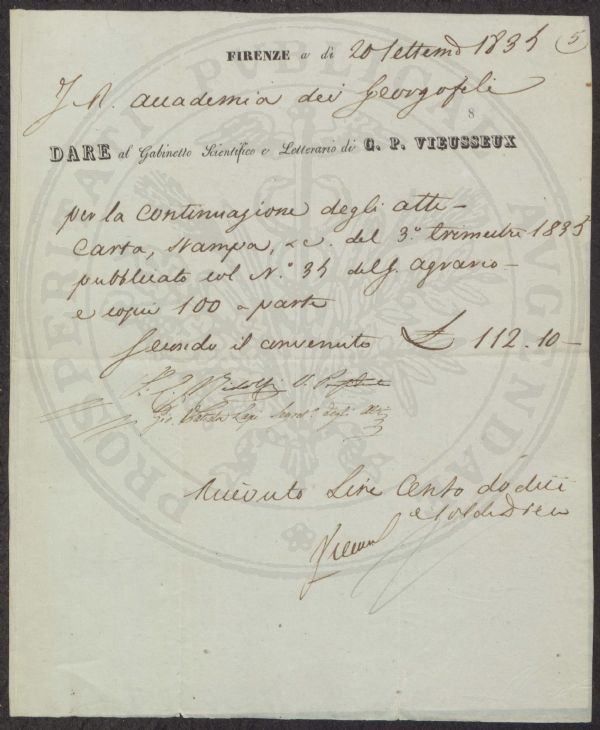 FIRENZE a dì 20 Settemb 1835 5
I R. Accademia dei Georgofili
8
DARE al Gabinetto Scientifico e Letterario di G. P. VIEUSSEUX
per la continuazione degli atti -
carta, stampa, &c. del 3.º trimestre 1835
pubblicato col N.º 35 del G. agrario -
e copie 100 a parte
Secondo il convenuto £ 112.10 -
Ridolfi V. Presidte
Gio. Batista Lapi Segret.º degli Atti
Ricevuto Lire Cento dodici
e soldi Dieci
Vieusseux
PROSPERITATI PUBLICAE AUGENDAE